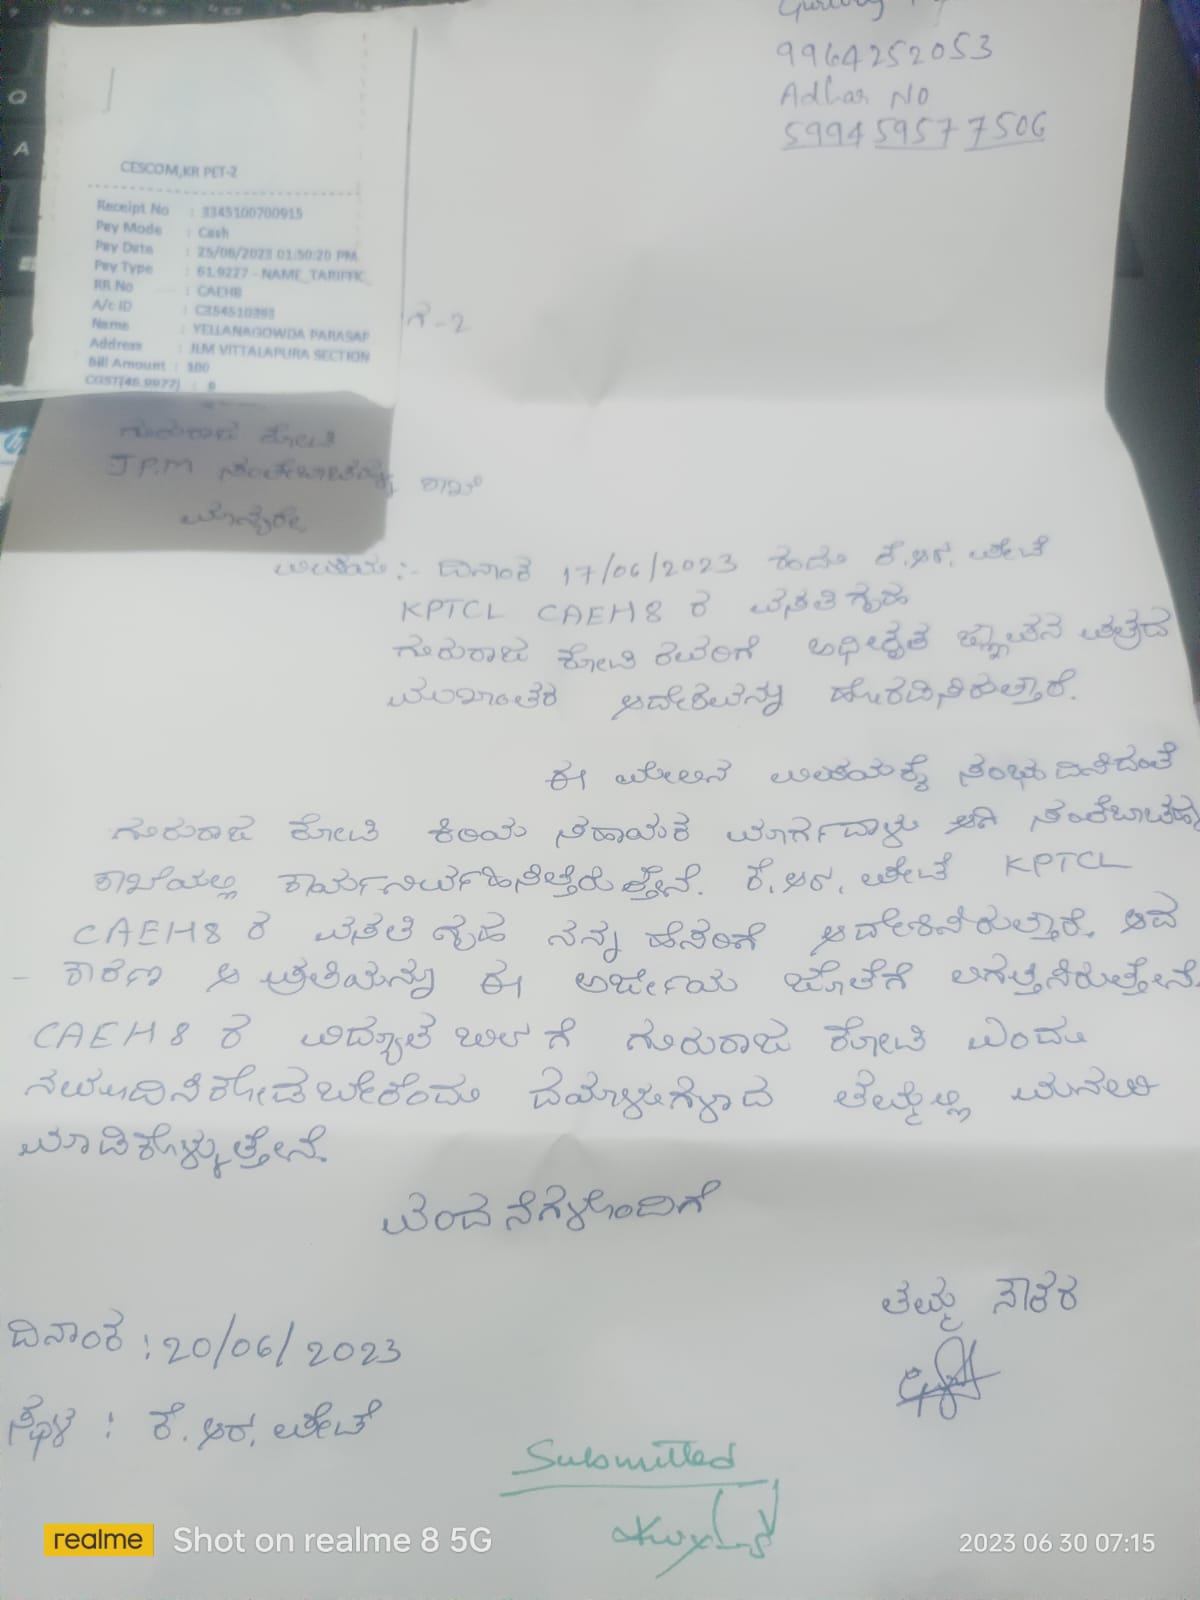 9964252053
Adhar NO
5994 5957 7506
CESCOM,KR PET-2
Receipt No : 3345100700915
Pay Mode : Cash
Pay Date : 25/06/2023 01:50:20 PM
Pay Type : 61.9227 - NAME_TARIFFIC_
RR No : CAEH8
A/c ID
Name : YELLANAGOWDA PARASAP
Address : JLM VITTALAPURA SECTION
Bill Amount : 100
CGST(46.9977) : 9
ಗೆ-2
ಗುರುರಾಜ ಕೋಟಿ
J P.M ಸಂತೇಬಾಚಹಳ್ಳಿ ಶಾಖೆ
ಮಾನ್ಯರೇ,
ವಿಷಯ :- ದಿನಾಂಕ 17/06/2023 ರಂದು ಕೆ.ಆರ್. ಪೇಟೆ
KPTCL CAEH8 ರ ವಸತಿ ಗೃಹ
ಗುರುರಾಜ ಕೋಟಿ ರವರಿಗೆ ಅಧೀಕೃತ ಜ್ಞಾಪನ ಪತ್ರದ
ಮುಖಾಂತರ ಆದೇಶವನ್ನು ಹೊರಡಿಸಿರುತ್ತಾರೆ.
ಈ ಮೇಲಿನ ವಿಷಯಕ್ಕೆ ಸಂಭಂದಿಸಿದಂತೆ
ಗುರುರಾಜ ಕೋಟಿ ಕಿರಿಯ ಸಹಾಯಕ ಮಾರ್ಗದಾಳು ಆಗಿ
ಶಾಖೆಯಲ್ಲಿ ಕಾರ್ಯನಿರ್ವಹಿಸಿತ್ತಿರುತ್ತೇನೆ. ಕೆ.ಆರ್. ಪೇಟೆ KPTCL
CAEH8 ರ ವಸತಿ ಗೃಹ ನನ್ನ ಹೆಸರಿಗೆ ಆದೇಶಿಸಿರುತ್ತಾರೆ. ಆದ
- ಕಾರಣ ಆ ಪ್ರತಿಯನ್ನು ಈ ಅರ್ಜಿಯ ಜೊತೆಗೆ ಲಗತ್ತಿಸಿರುತ್ತೇನೆ.
CAEH8 ರ ವಿದ್ಯುತ್ ಬಿಲ್ ಗೆ ಗುರುರಾಜ ಕೋಟಿ ಎಂದು
ನಮೂದಿಸಿಕೊಡಬೇಕೆಂದು ದಯಾಳುಗಳಾದ ತಮ್ಮಲ್ಲಿ ಮನವಿ
ಮಾಡಿಕೊಳ್ಳುತ್ತೇನೆ.
ವಂದನೆಗಳೊಂದಿಗೆ
ತಮ್ಮ ನೌಕರ
ದಿನಾಂಕ : 20/06/2023
ಸ್ಥಳ : ಕೆ.ಆರ್. ಪೇಟೆ
Submitted
realme Shot on realme 8 5G
2023 06 30 07:15